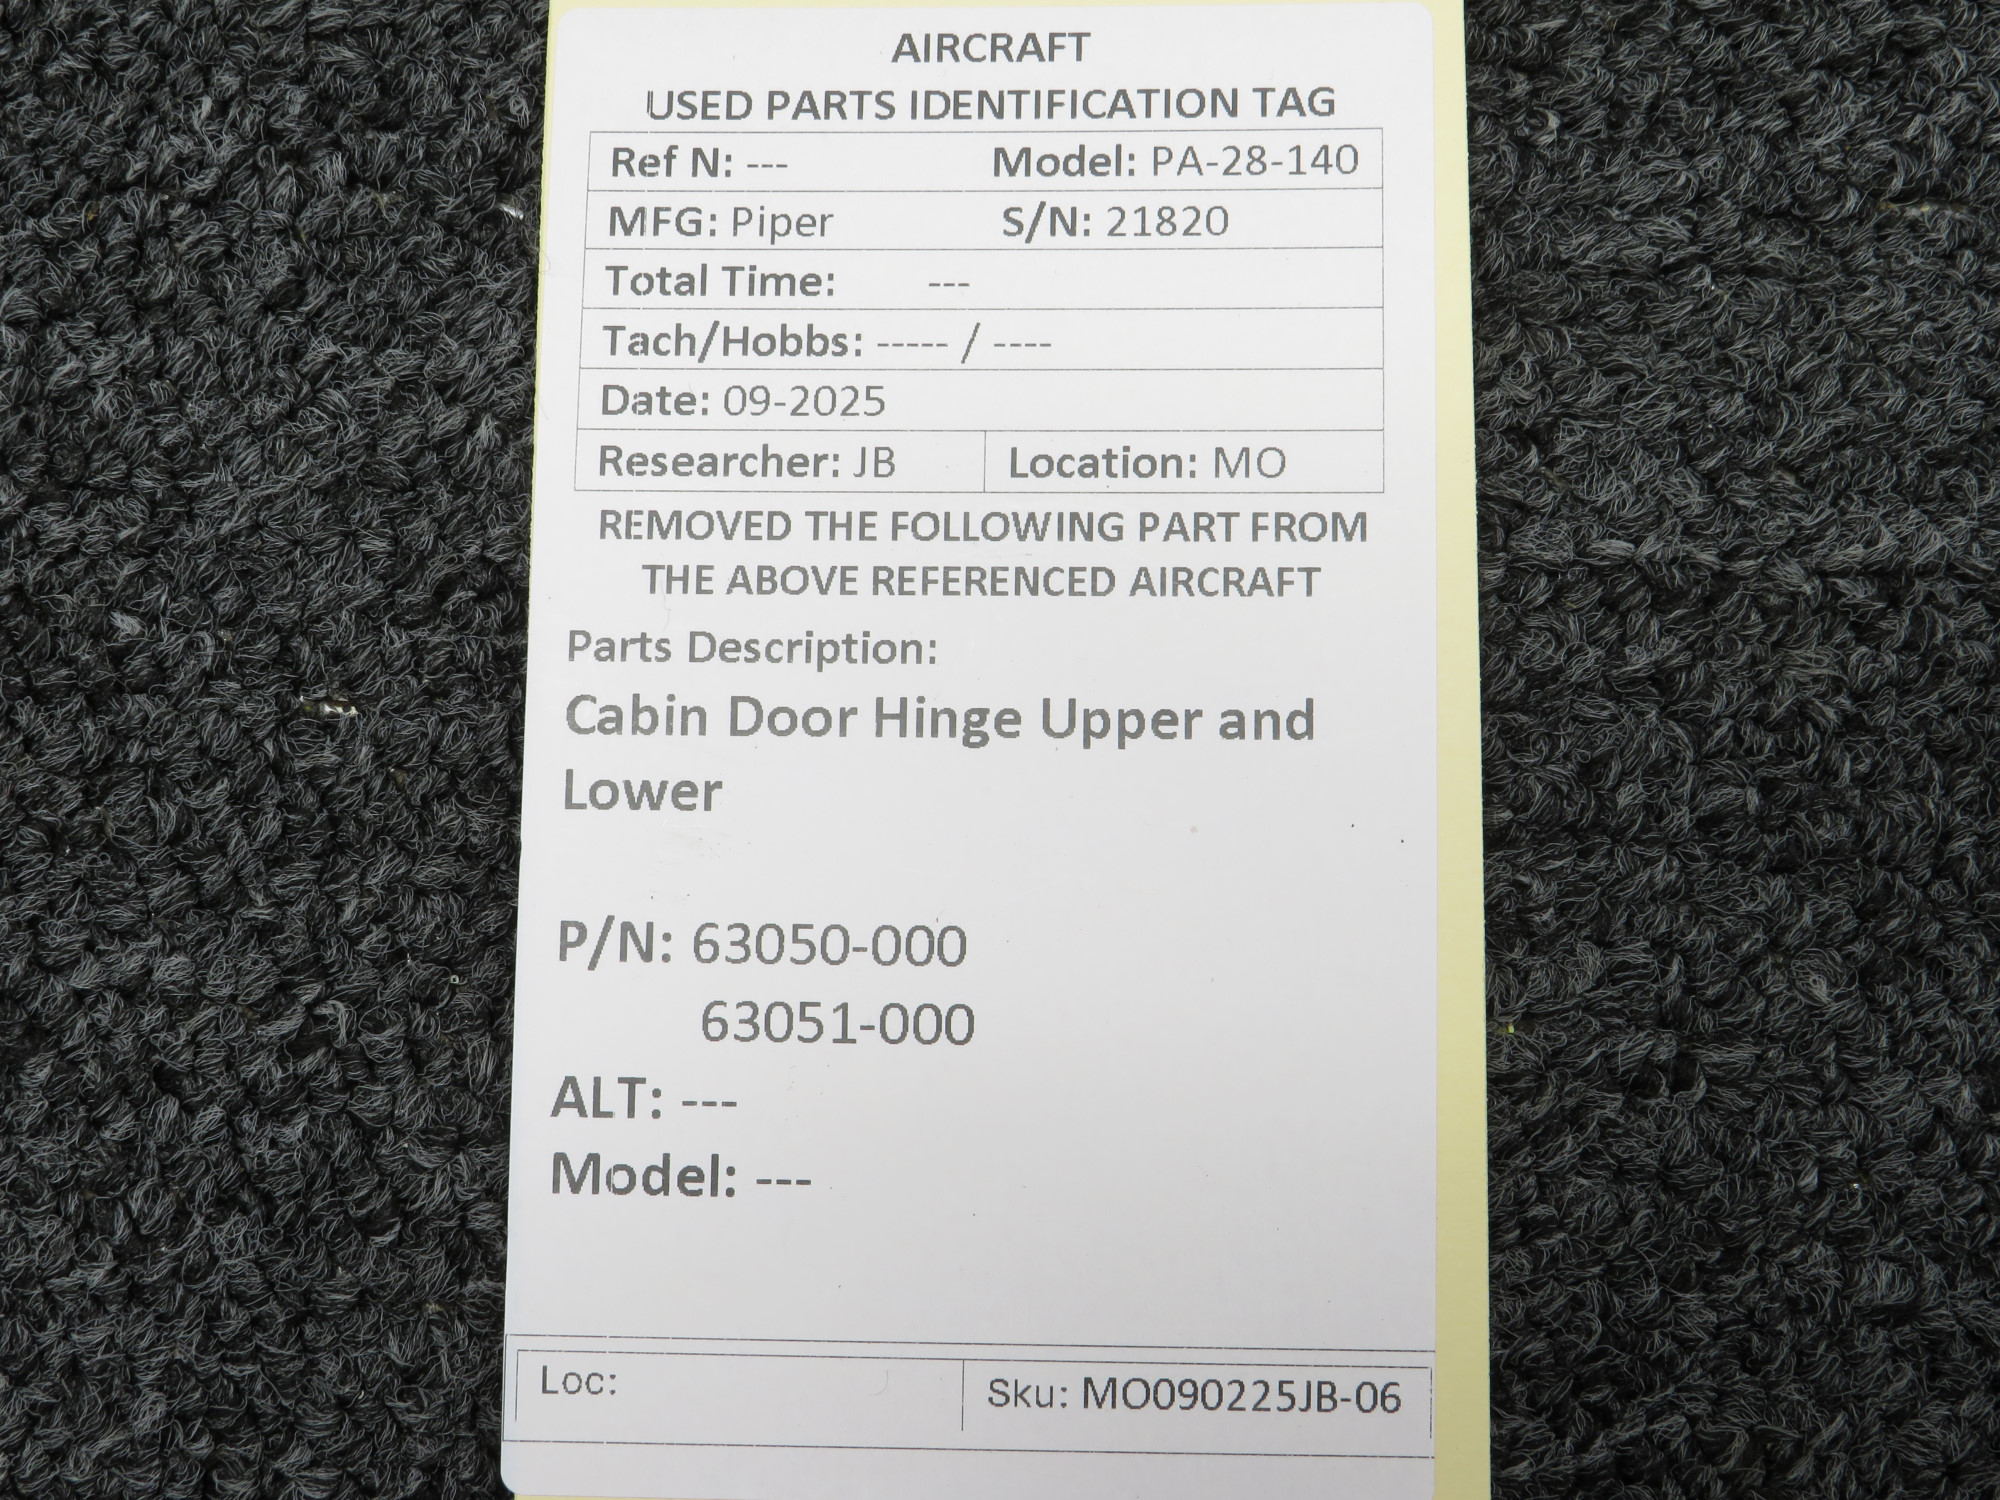 AIRCRAFT
USED PARTS IDENTIFICATION TAG
Ref N: --- Model: PA-28-140
MFG: Piper S/N: 21820
Total Time: ---
Tach/Hobbs: ----- / ----
Date: 09-2025
Researcher: JB Location: MO
REMOVED THE FOLLOWING PART FROM
THE ABOVE REFERENCED AIRCRAFT
Parts Description:
Cabin Door Hinge Upper and
Lower
P/N: 63050-000
63051-000
ALT: ---
Model: ---
Loc: Sku: MO090225JB-06